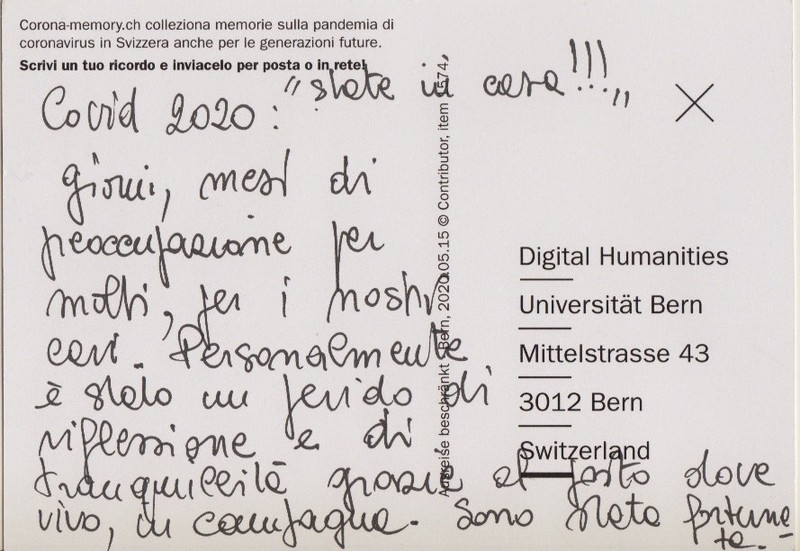 Corona-memory.ch colleziona memorie sulla pandemia di
coronavirus in Svizzera anche per le generazioni future.
Scrivi un tuo ricordo e inviacelo per posta o in rete!
Covid 2020 : "state in casa!!!"
giorni, mesi di
preoccupazione per
molti, per i nostri
cari. Personalmente
è stato un periodo di
riflessione e di
tranquillità grazie al posto dove
vivo, in campagna. Sono stata fortuna
ta.-
Bern, 2020.05.15 © Contributor, item 1574,
Digital Humanities
Universität Bern
Mittelstrasse 43
3012 Bern
Switzerland